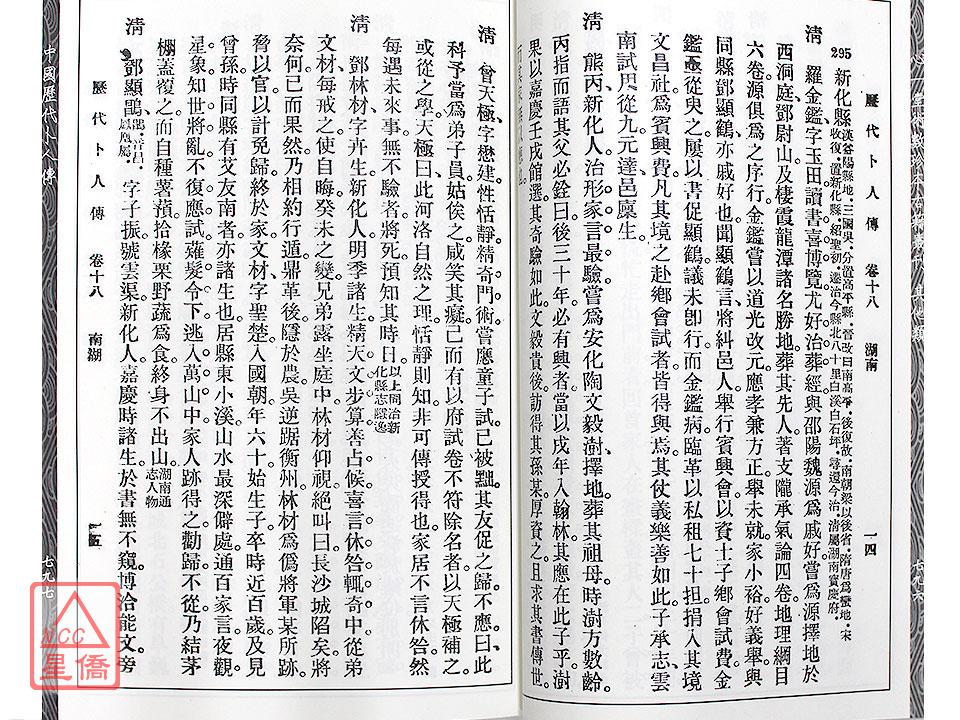 歷代卜人傳　卷十八　湖南　一四
295 新化縣 漢益陽縣地．三國吳．分置高平縣．晉改曰南高平．後復故．南朝梁以後省．隋唐爲蠻地．宋
收復．置新化縣．紹聖初．遷治今縣北八十里白溪白石坪．尋還今治．淸屬湖南寶慶府．
淸　羅金鑑字玉田讀書喜博覽尤好治葬經與邵陽魏源爲戚好嘗爲源擇地於
西洞庭鄧尉山及棲霞龍潭諸名勝地葬其先人著支隴承氣論四卷地理綱目
六卷源俱爲之序行金鑑嘗以道光改元應孝兼方正舉未就家小裕好義舉與
同縣鄧顯鶴亦戚好也聞顯鶴言將糾邑人舉行賓興會以資士子鄉會試費金
鑑亟從臾之屢以書促顯鶴議未卽行而金鑑病臨革以私租七十担捐入其境
文昌社爲賓興費凡其境之赴鄉會試者皆得與焉其仗義樂善如此子承志雲
南試用從九元達邑廩生
淸　熊丙新化人治形家言最驗嘗爲安化陶文毅澍擇地葬其祖母時澍方數齡
丙指而語其父必銓曰後三十年必有興者當以戌年入翰林其應在此子乎澍
果以嘉慶壬戌館選其奇驗如此文毅貴後訪得其孫某厚資之且求其書傳世
淸　曾天極字懋建性恬靜精奇門術嘗應童子試已被黜其友促之歸不應曰此
科予當爲弟子員姑俟之咸笑其癡已而有以府試卷不符除名者以天極補之
或從之學天極曰此河洛自然之理恬靜則知非可傳授得也家居不言休咎然
每遇未來事無不驗者將死預知其時日 以上同治新
化縣志隱逸
淸　鄧林材字卉生新化人明季諸生精天文步算善占候喜言休咎輒奇中從弟
文材每戒之使自晦癸未之變兄弟露坐庭中林材仰視絕叫曰長沙城陷矣將
奈何已而果然乃相約行遁鼎革後隱於農吳逆踞衡州林材爲僞將軍某所跡
脅以官以計免歸終於家文材字聖楚入國朝年六十始生子卒時近百歲及見
曾孫時同縣有艾友南者亦諸生也居縣東小溪山水最深僻處通百家言夜觀
星象知世將亂不復應試薙髮令下逃入萬山中家人跡得之勸歸不從乃結茅
棚蓋覆之而自種薯蕷拾橡栗野蔬爲食終身不出山 湖南通
志人物
淸　鄧顯鵑字子振號雲渠新化人嘉慶時諸生於書無不窺博洽能文旁
歷代卜人傳　卷十八　南湖　一五
七九七
NCC
星僑